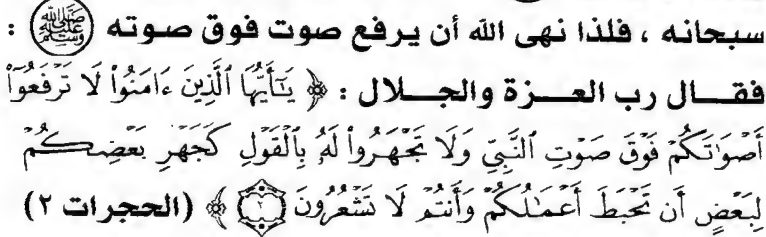 سبحانه ، فلذا نهى الله أن يرفع صوت فوق صوته ﷺ :
فقال رب العزة والجلال : ﴿ يَـٰٓأَيُّهَا ٱلَّذِينَ ءَامَنُوا۟ لَا تَرْفَعُوٓا۟
أَصْوَٰتَكُمْ فَوْقَ صَوْتِ ٱلنَّبِيِّ وَلَا تَجْهَرُوا۟ لَهُۥ بِٱلْقَوْلِ كَجَهْرِ بَعْضِكُمْ
لِبَعْضٍ أَن تَحْبَطَ أَعْمَـٰلُكُمْ وَأَنتُمْ لَا تَشْعُرُونَ ۝٢ ﴾ (الحجرات ٢)